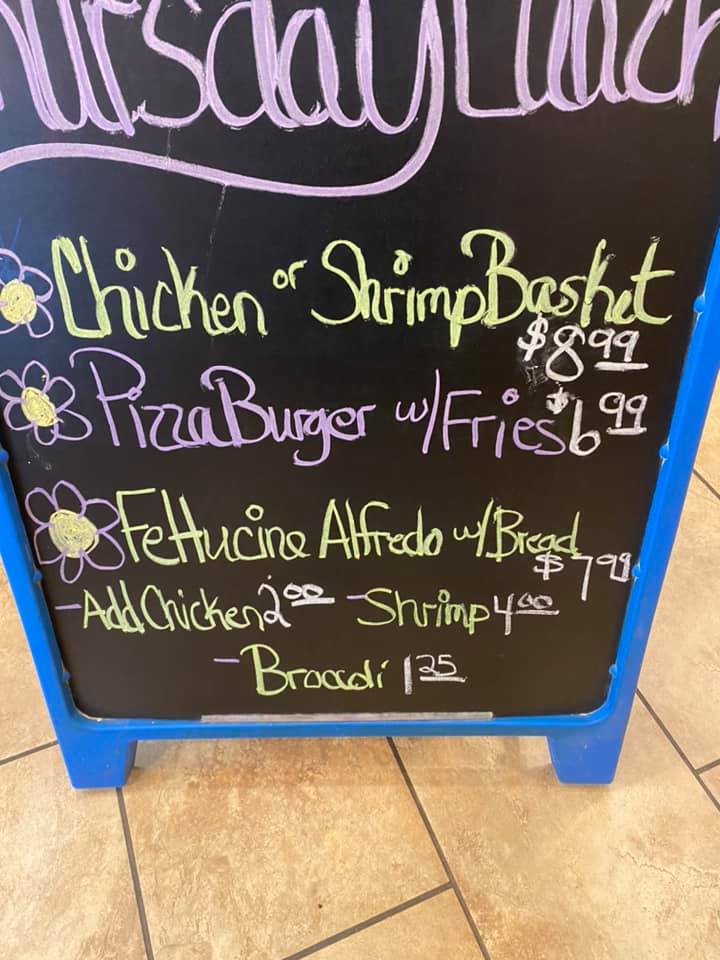 ursday Lunch
Chicken or Shrimp Basket
$8.99
Pizza Burger w/Fries $6.99
Fettucine Alfredo w/Bread
$7.99
- Add Chicken 2.00 - Shrimp 4.00
- Broccoli 1.25